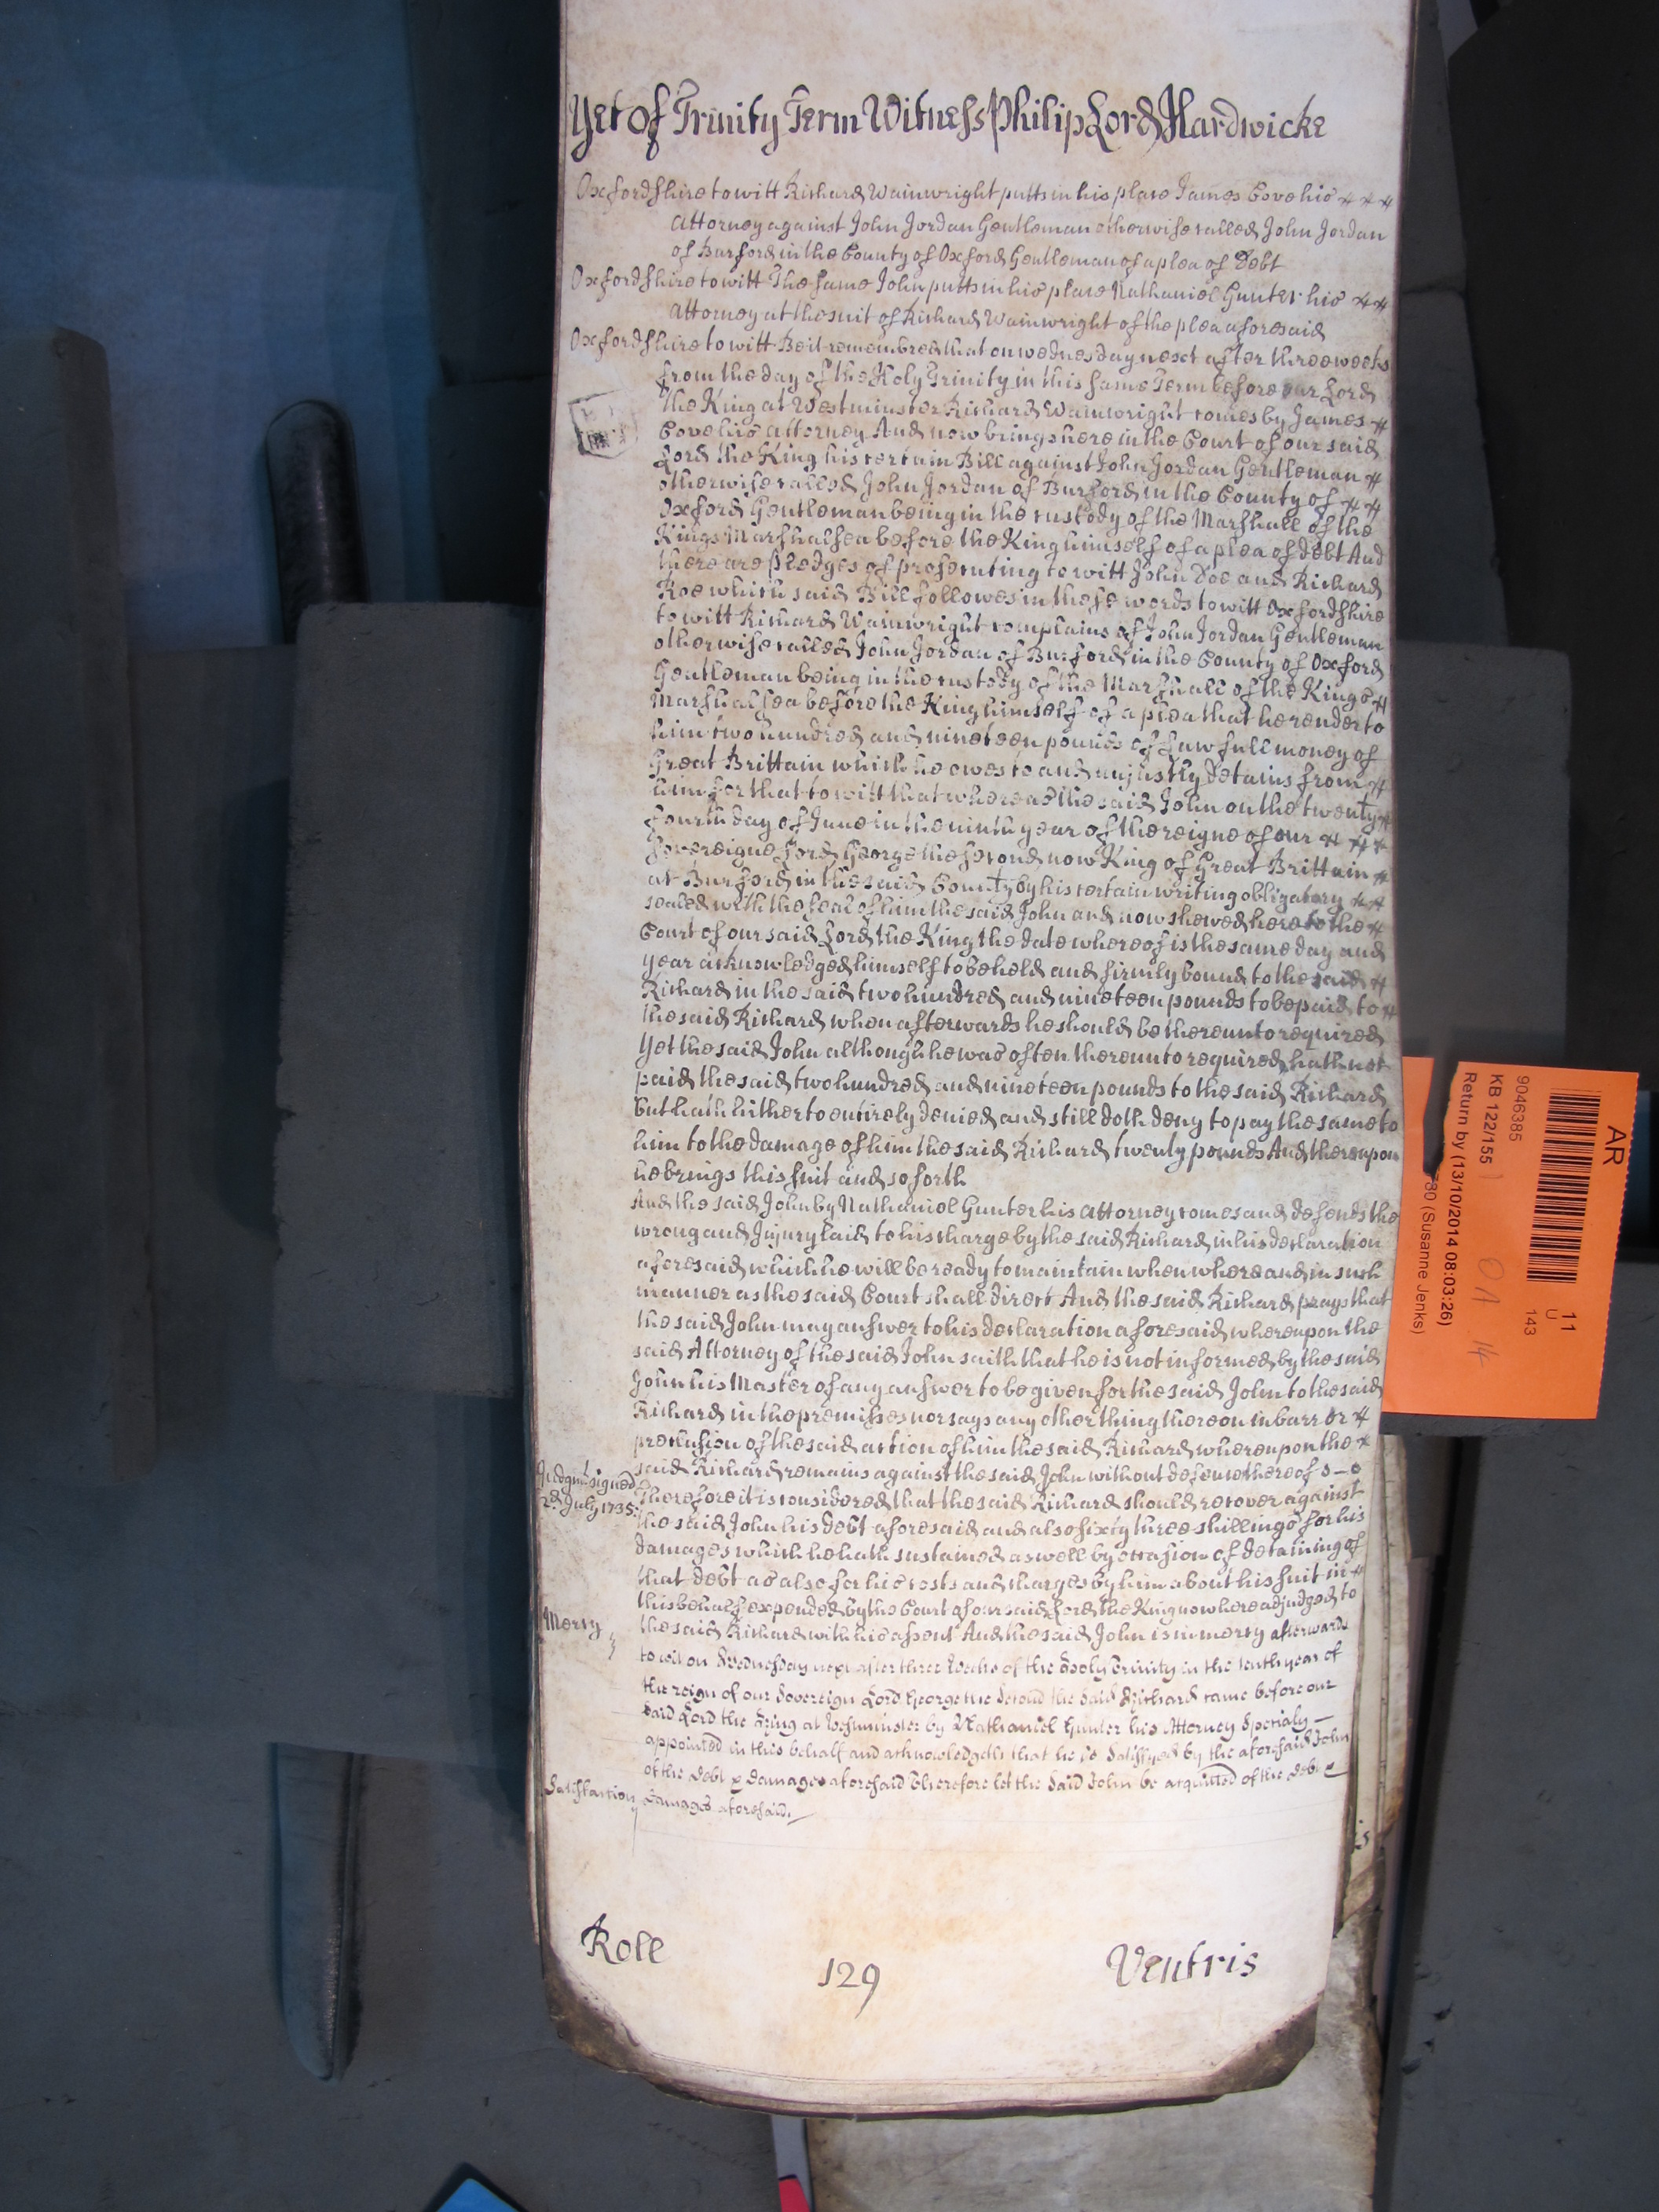 Yet of Trinity Term Witness Philip Lord Hardwicke
Oxfordshire to witt Richard Wainwright putts in his place James Cove his
Attorney against John Jordan Gentleman otherwise called John Jordan
of Burford in the County of Oxford Gentleman of a plea of Debt
Oxfordshire to witt The same John putts in his place Nathaniel Gunter his
Attorney at the suit of Richard Wainwright of the plea aforesaid
Oxfordshire to witt Be it remembred that on wednesday next after three weeks
from the day of the Holy Trinity in this same Term before our Lord
the King at Westminster Richard Wainwright comes by James
Cove his Attorney And now brings here in the Court of our said
Lord the King his certain Bill against John Jordan Gentleman
otherwise called John Jordan of Burford in the County of
Oxford Gentleman being in the custody of the Marshall of the
Kings Marshalsea before the King himself of a plea of debt And
there are pledges of prosecuting to witt John Doe and Richard
Roe which said Bill followes in these words to witt Oxfordshire
to witt Richard Wainwright complains of John Jordan Gentleman
otherwise called John Jordan of Burford in the County of Oxford
Gentleman being in the custody of the Marshall of the Kings
Marshalsea before the King himself of a plea that he render to
him two hundred and nineteen pounds of lawfull money of
Great Brittain which he owes to and unjustly detains from
him for that to witt that whereas the said John on the twenty
fourth day of June in the ninth year of the reigne of our
Sovereigne Lord George the second now King of Great Brittain
at Burford in the said County by his certain writing obligatory
sealed with the seal of him the said John and now shewed here to the
Court of our said Lord the King the date whereof is the same day and
year acknowledged himself to be held and firmly bound to the said
Richard in the said two hundred and nineteen pounds to be paid to
the said Richard when afterwards he should be thereunto required
Yet the said John although he was often thereunto required hath not
paid the said two hundred and nineteen pounds to the said Richard
but hath hitherto entirely denied and still doth deny to pay the same to
him to the damage of him the said Richard twenty pounds And thereupon
he brings this suit and so forth
And the said John by Nathaniel Gunter his attorney comes and defends the
wrong and Injury laid to his charge by the said Richard in his declaration
aforesaid which he will be ready to maintain when where and in such
manner as the said Court shall direct And the said Richard prays that
the said John may answer to his declaration aforesaid whereupon the
said Attorney of the said John saith that he is not informed by the said
John his Master of any answer to be given for the said John to the said
Richard in the premisses nor says any other thing thereon in barr or
preclusion of the said action of him the said Richard whereupon the
said Richard remains against the said John without defence thereof
Judgmt. signed
2d. July 1735:
Therefore it is considered that the said Richard should recover against
the said John his debt aforesaid and also sixty three shillings for his
damages which he hath sustained as well by occasion of detaining of
that debt as also for his costs and charges by him about his suit in
this behalf expended by the Court of our said Lord the King now here adjudged to
Mercy
the said Richard with his assent And the said John is in mercy afterwards
to wit on Wednesday next after three Weeks of the Holy Trinity in the tenth year of
the reign of our Sovereign Lord George the Second the said Richard came before our
said Lord the King at Westminster by Nathaniel Gunter his Attorney Specialy
appointed in this behalf and acknowledgeth that he is satisfyed by the aforesaid John
of the Debt & Damages aforesaid Therefore let the said John be acquitted of the Debt &
Satisfaction
Damages aforesaid.
Roll 129 Ventris
AR
11
U
143
9046385
KB 122/155
Return by (13/10/2014 08:03:26)
(Susanne Jenks)